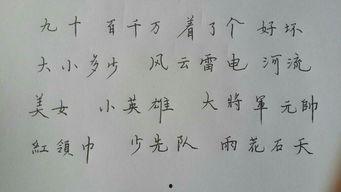 九十 百千万 着了个 好坏
大小多少 风云雷电 河流
美女 小英雄 大將軍 元帥
紅領巾 少先队 雨花石天